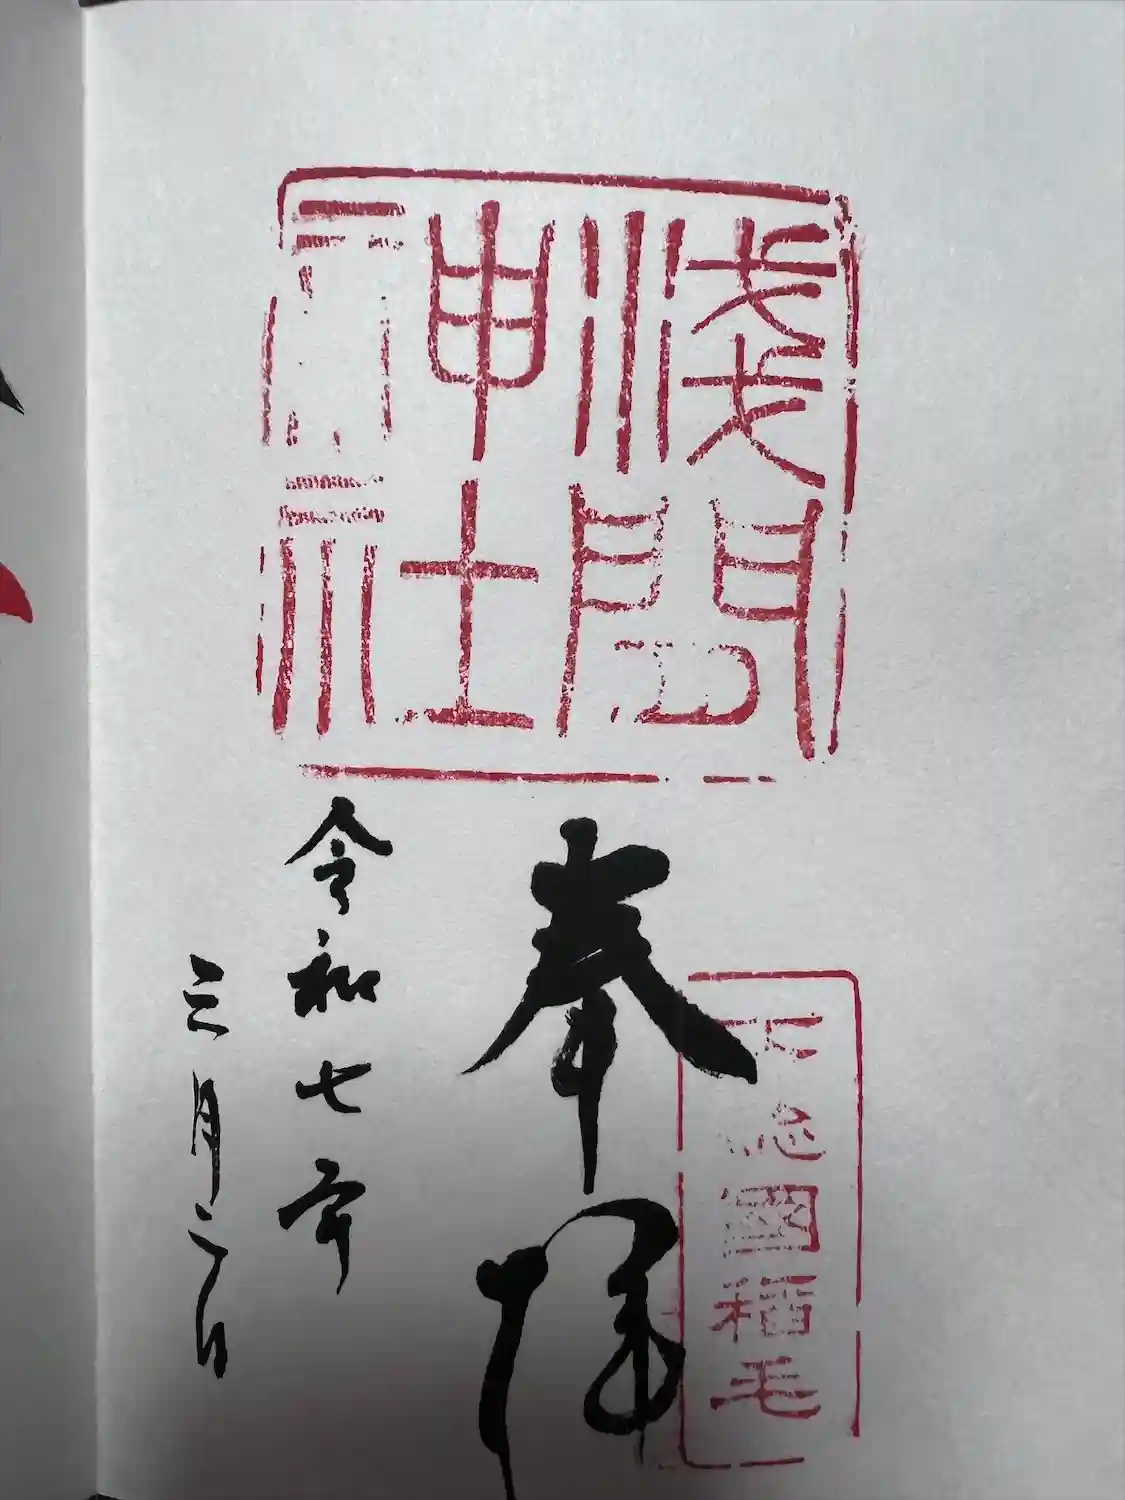 淺間
神社
下總國稲毛
奉拝
令和七年
三月二日